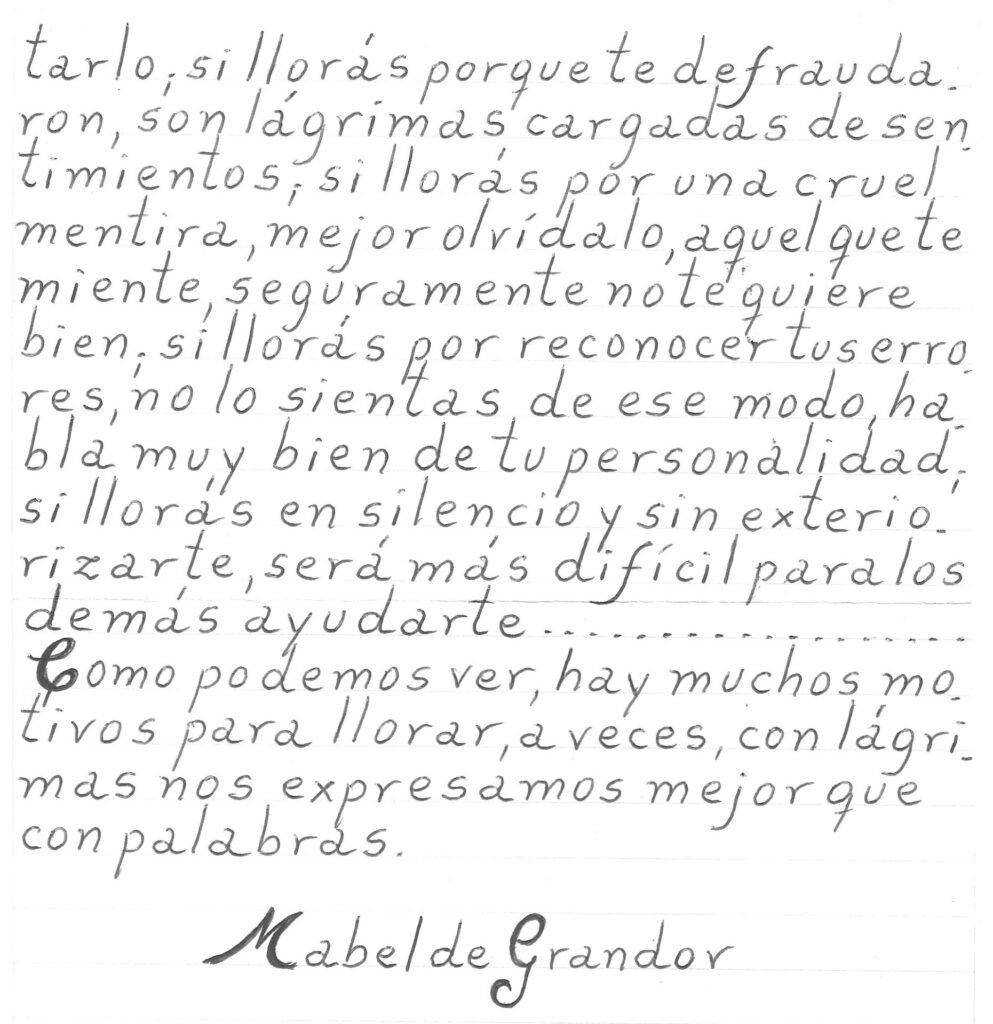 tarlo; si llorás porque te defrauda-
ron, son lágrimas cargadas de sen-
timientos; si llorás por una cruel
mentira, mejor olvídalo, aquel que te
miente, seguramente no te quiere
bien; si llorás por reconocer tus erro-
res, no lo sientas de ese modo, ha-
bla muy bien de tu personalidad;
si llorás en silencio y sin exterio-
rizarte, será más difícil para los
demás ayudarte...................
Como podemos ver, hay muchos mo-
tivos para llorar, a veces, con lágri-
mas nos expresamos mejor que
con palabras.
Mabel de Grandor